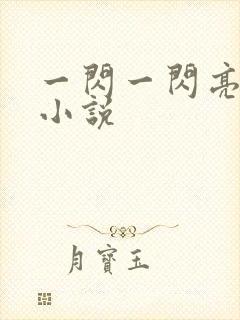 一閃一閃亮
小說
月寶玉